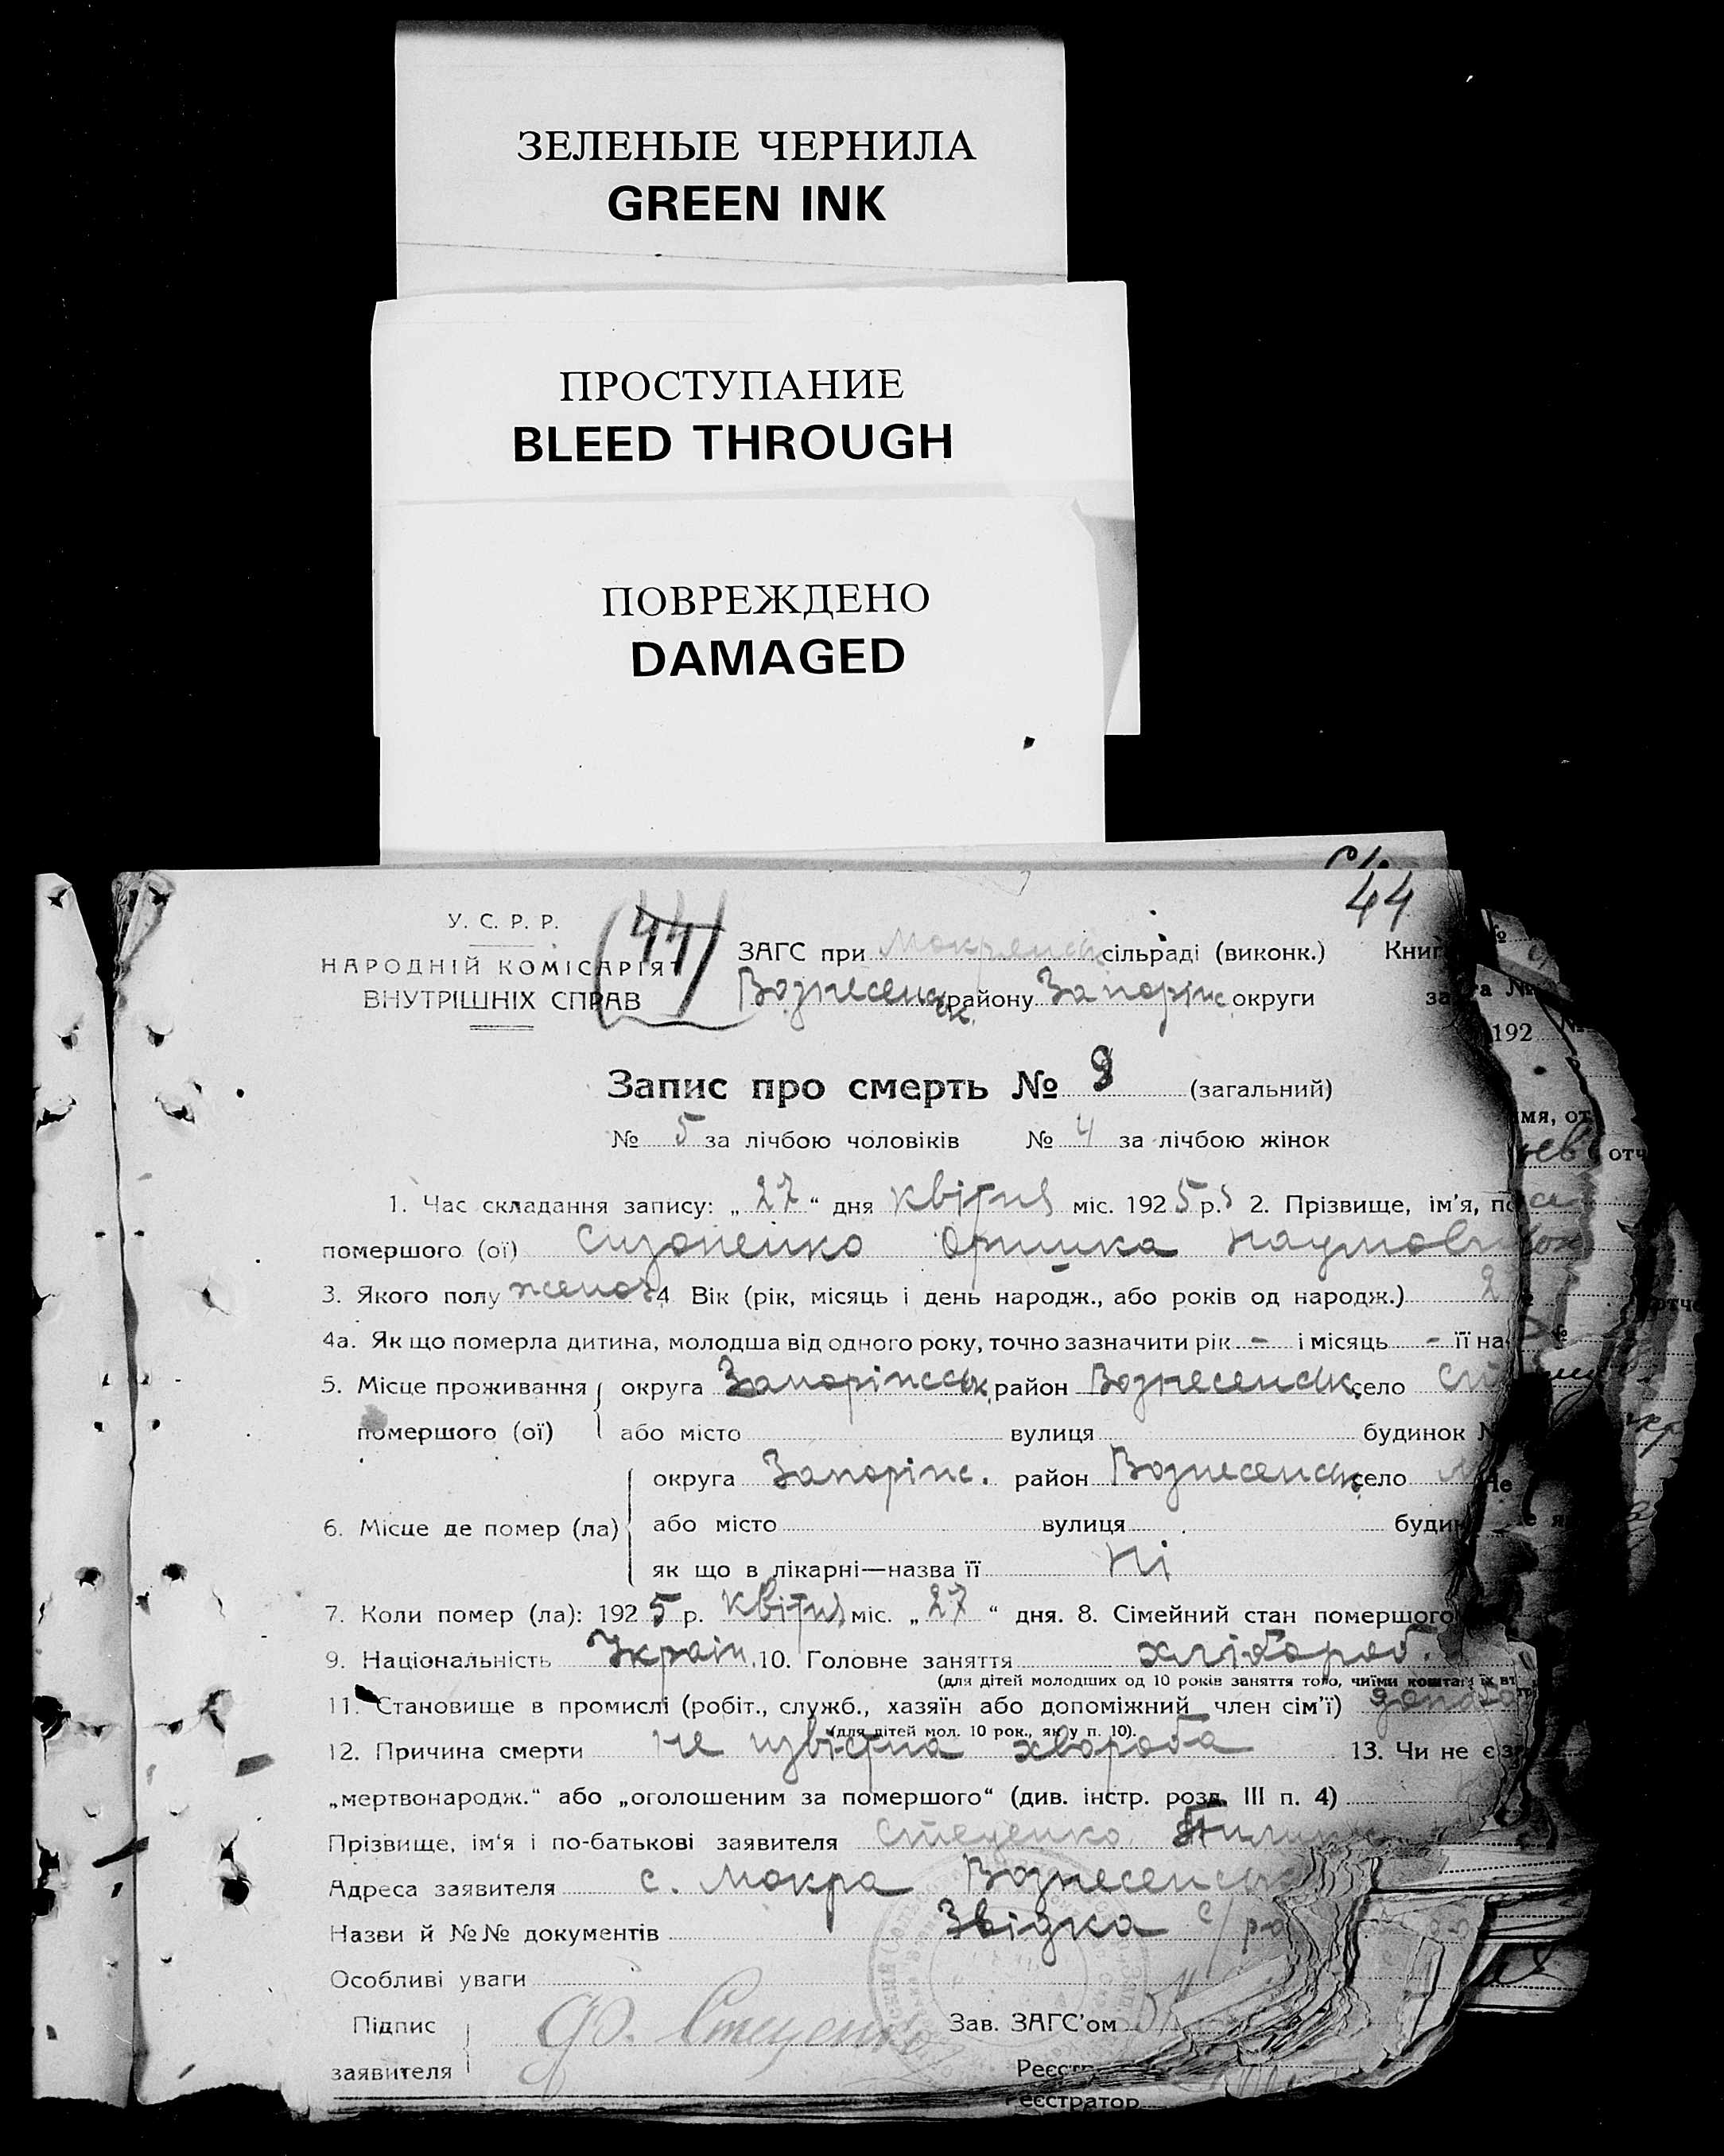 ЗЕЛЕНЫЕ ЧЕРНИЛА
GREEN INK
ПРОСТУПАНИЕ
BLEED THROUGH
ПОВРЕЖДЕНО
DAMAGED
44
У. С. Р. Р.
(44)
НАРОДНІЙ КОМІСАРІЯТ
ВНУТРІШНІХ СПРАВ
ЗАГС при Мокрянськ сільраді (виконк.) Книг
Вознесенськ. району Запоріж округи за
та №
192
Запис про смерть № 9 (загальний)
№ 5 за лічбою чоловіків № 4 за лічбою жінок
мя, от
отч
1. Час складання запису: „ 27 “ дня квітня міс. 1925 р. 2. Прізвище, ім'я, по
помершого (ої) Сизоненко Оришка
3. Якого полу жіноч 4 Вік (рік, місяць і день народж., або років од народж.)
4а. Як що померла дитина, молодша від одного року, точно зазначити рік - і місяць - її на
5. Місце проживання помершого (ої) округа Запоріжськ. район Вознесенськ. село
або місто вулиця будинок №
6. Місце де помер (ла) округа Запоріж. район Вознесенськ село
або місто вулиця будин
як що в лікарні—назва її Ні
7. Коли помер (ла): 1925 р. квітня міс. „ 27 “ дня. 8. Сімейний стан помершого
9. Національність Україн. 10. Головне заняття хлібороб.
(для дітей молодших од 10 років заняття того, чиїми коштами їх вт
11. Становище в промислі (робіт., служб., хазяїн або допоміжний член сім'ї)
(для дітей мол. 10 рок., як у п. 10).
12. Причина смерти не ізвістна хвороба 13. Чи не є з
„мертвонародж.“ або „оголошеним за помершого“ (див. інстр. розд. III п. 4)
Прізвище, ім'я і по-батькові заявителя Стеценко
Адреса заявителя с. Мокра Вознесенськ
Назви й №№ документів Звідка с/ра
Особливі уваги
Підпис заявителя Стеценко
Зав. ЗАГС'ом
Реєстр
еєстратор